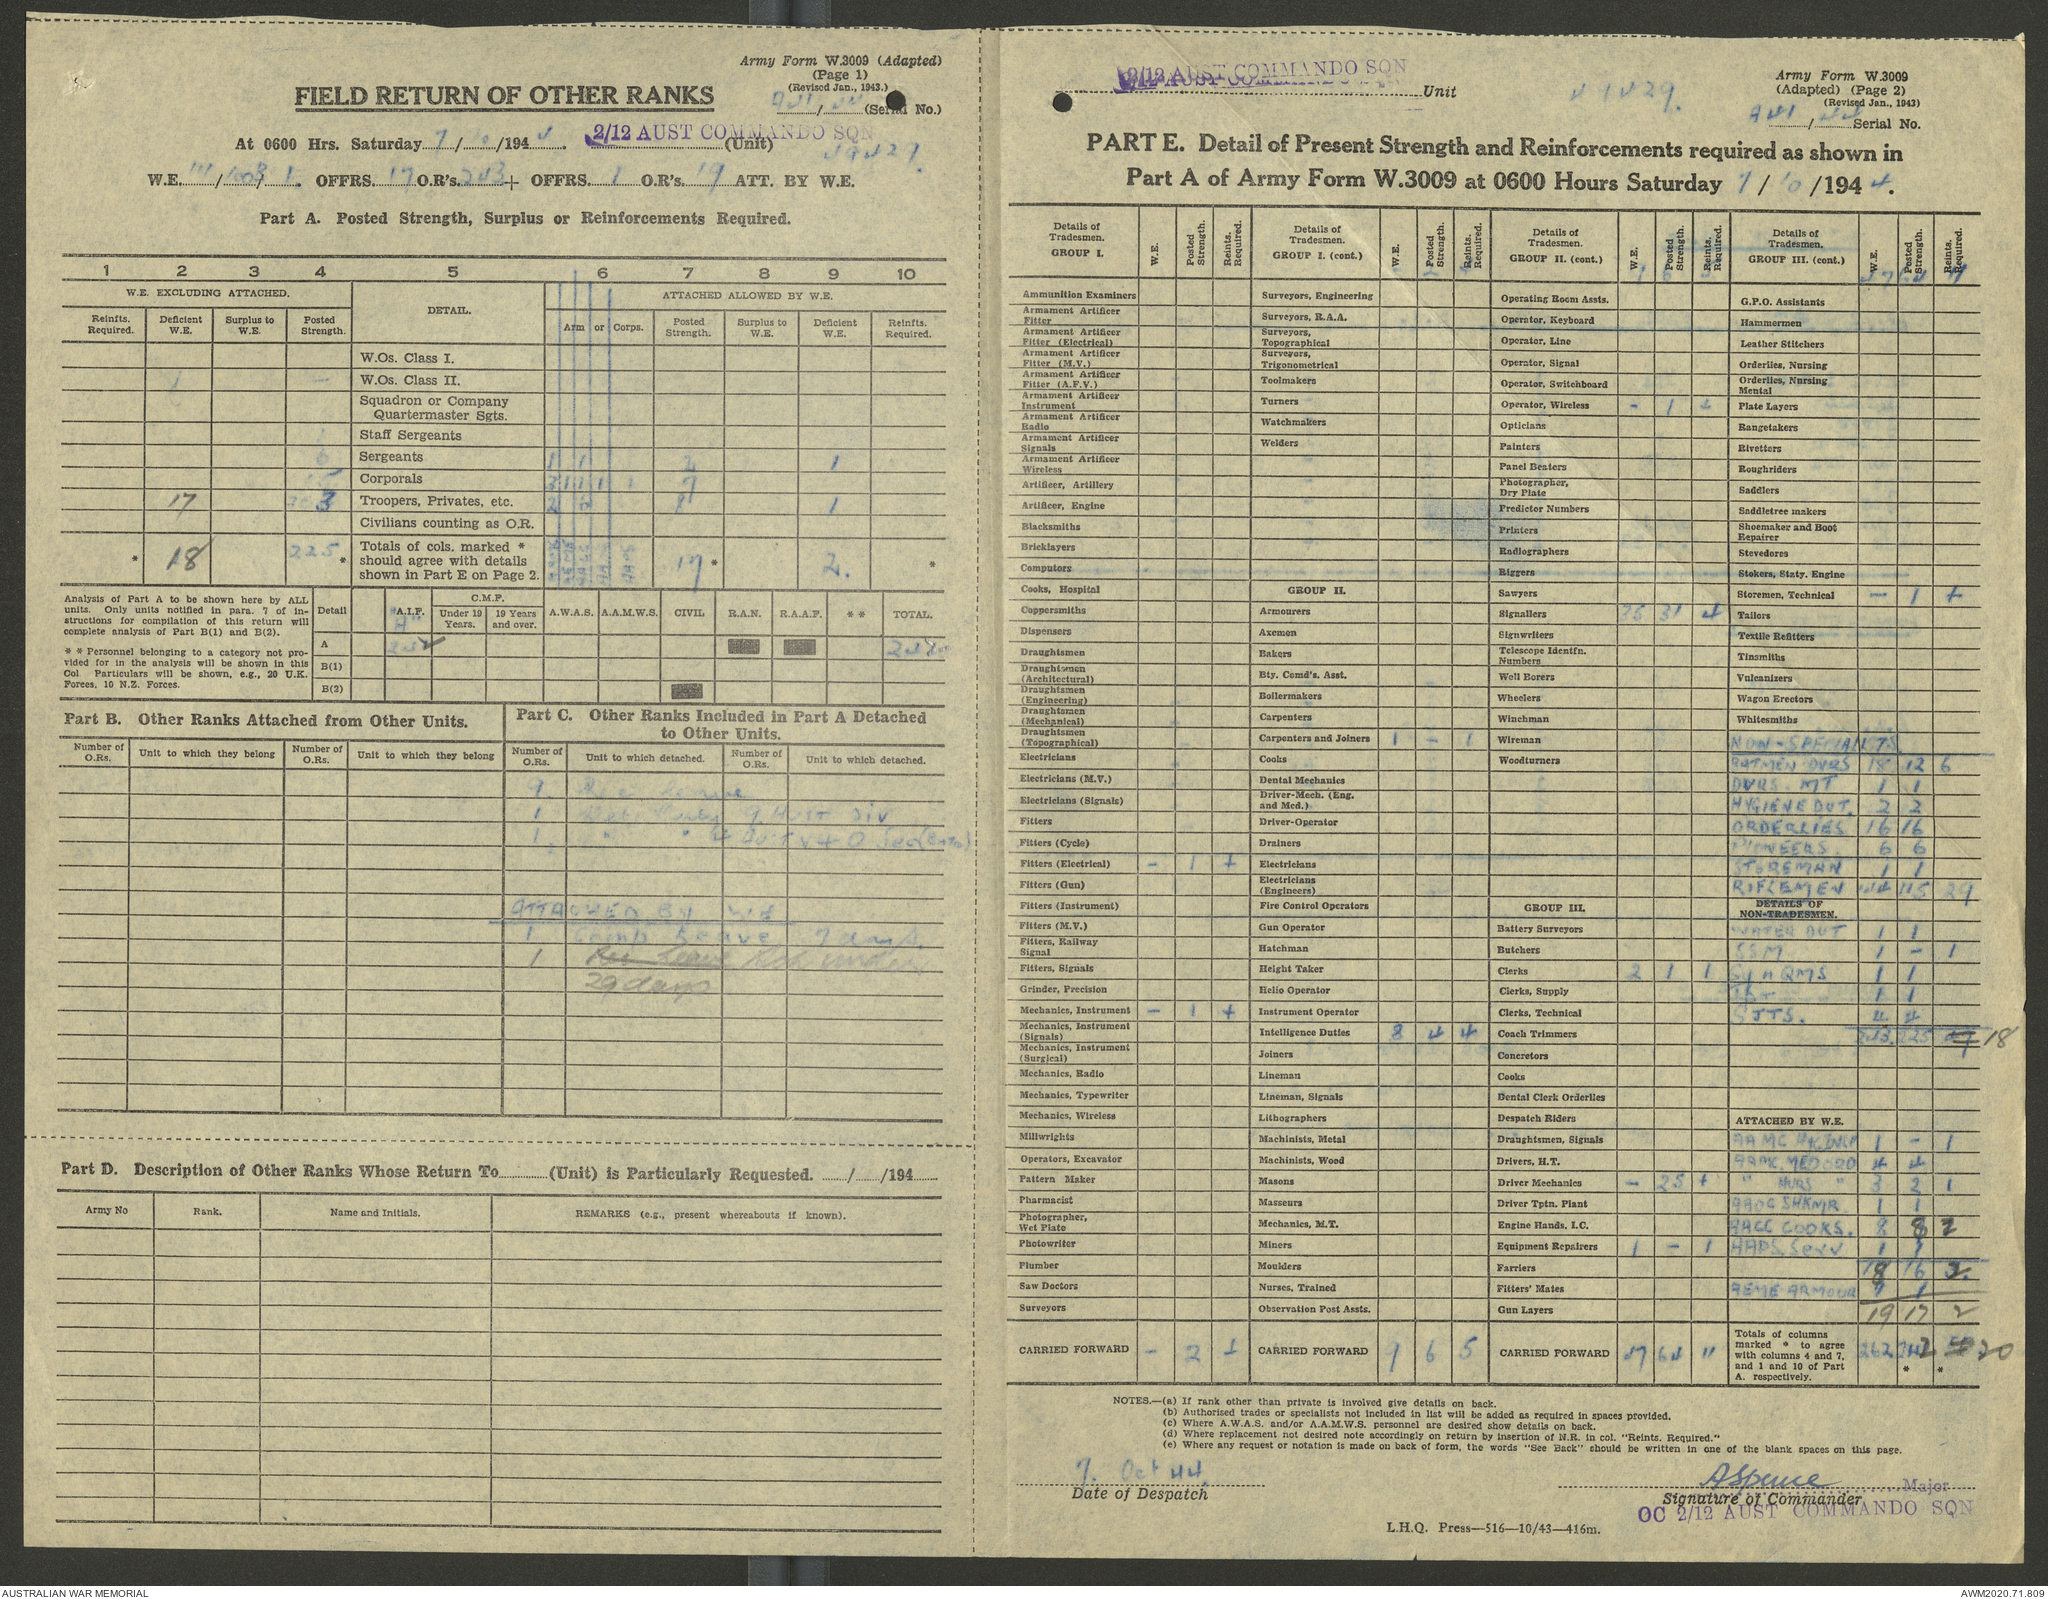 Army Form W.3009 (Adapted)
(Page 1)
(Revised Jan., 1943.)
FIELD RETURN OF OTHER RANKS
(Serial No.)
At 0600 Hrs. Saturday 7/10/1944. 2/12 AUST COMMANDO SQN (Unit)
W.E. 111/1008/1. OFFRS. 17 O.R's. 243 + OFFRS. 1 O.R's. 19 ATT. BY W.E.
Part A. Posted Strength, Surplus or Reinforcements Required.
1 2 3 4 5 6 7 8 9 10
W.E. EXCLUDING ATTACHED. DETAIL. ATTACHED ALLOWED BY W.E.
Reinfts. Required. Deficient W.E. Surplus to W.E. Posted Strength. Arm or Corps. Posted Strength. Surplus to W.E. Deficient W.E. Reinfts. Required.
W.Os. Class I.
1 - W.Os. Class II.
Squadron or Company
Quartermaster Sgts.
Staff Sergeants
6 Sergeants 1 1 2 1
Corporals 7
17 Troopers, Privates, etc. 2 2 1
Civilians counting as O.R.
* 18 225 * Totals of cols. marked *
should agree with details
shown in Part E on Page 2. 17 * 2. *
Analysis of Part A to be shown here by ALL
units. Only units notified in para. 7 of in-
structions for compilation of this return will
complete analysis of Part B(1) and B(2).
* * Personnel belonging to a category not pro-
vided for in the analysis will be shown in this
Col. Particulars will be shown, e.g., 20 U.K.
Forces, 10 N.Z. Forces.
Detail A.I.F. C.M.F. Under 19 Years. 19 Years and over. A.W.A.S. A.A.M.W.S. CIVIL R.A.N. R.A.A.F. * * TOTAL.
A 242 242
B(1)
B(2)
Part B. Other Ranks Attached from Other Units.
Number of O.Rs. Unit to which they belong Number of O.Rs. Unit to which they belong
Part C. Other Ranks Included in Part A Detached
to Other Units.
Number of O.Rs. Unit to which detached. Number of O.Rs. Unit to which detached.
9 Rec Leave
1 9 Aust Div
1
ATTACHED BY WE
1 Comp Leave 7 days.
1 Rec Leave
29 days
Part D. Description of Other Ranks Whose Return To (Unit) is Particularly Requested. / /194
Army No Rank. Name and Initials. REMARKS (e.g., present whereabouts if known).
2/12 AUST COMMANDO SQN Unit
Army Form W.3009
(Adapted) (Page 2)
(Revised Jan., 1943)
Serial No.
PART E. Detail of Present Strength and Reinforcements required as shown in
Part A of Army Form W.3009 at 0600 Hours Saturday 7/10/1944.
Details of Tradesmen. GROUP I. W.E. Posted Strength. Reints. Required.
Ammunition Examiners
Armament Artificer Fitter
Armament Artificer Fitter (Electrical)
Armament Artificer Fitter (M.V.)
Armament Artificer Fitter (A.F.V.)
Armament Artificer Instrument
Armament Artificer Radio
Armament Artificer Signals
Armament Artificer Wireless
Artificer, Artillery
Artificer, Engine
Blacksmiths
Bricklayers
Computors
Cooks, Hospital
Coppersmiths
Dispensers
Draughtsmen
Draughtsmen (Architectural)
Draughtsmen (Engineering)
Draughtsmen (Mechanical)
Draughtsmen (Topographical)
Electricians
Electricians (M.V.)
Electricians (Signals)
Fitters
Fitters (Cycle)
Fitters (Electrical) - 1 +
Fitters (Gun)
Fitters (Instrument)
Fitters (M.V.)
Fitters, Railway Signal
Fitters, Signals
Grinder, Precision
Mechanics, Instrument - 1 +
Mechanics, Instrument (Signals)
Mechanics, Instrument (Surgical)
Mechanics, Radio
Mechanics, Typewriter
Mechanics, Wireless
Millwrights
Operators, Excavator
Pattern Maker
Pharmacist
Photographer, Wet Plate
Photowriter
Plumber
Saw Doctors
Surveyors
CARRIED FORWARD - 2 +
Details of Tradesmen. GROUP I. (cont.) W.E. Posted Strength. Reints. Required.
Surveyors, Engineering
Surveyors, R.A.A.
Surveyors, Topographical
Surveyors, Trigonometrical
Toolmakers
Turners
Watchmakers
Welders
GROUP II.
Armourers
Axemen
Bakers
Bty. Comd's. Asst.
Boilermakers
Carpenters
Carpenters and Joiners 1 - 1
Cooks
Dental Mechanics
Driver-Mech. (Eng. and Mcd.)
Driver-Operator
Drainers
Electricians
Electricians (Engineers)
Fire Control Operators
Gun Operator
Hatchman
Height Taker
Helio Operator
Instrument Operator
Intelligence Duties 8 4 4
Joiners
Lineman
Lineman, Signals
Lithographers
Machinists, Metal
Machinists, Wood
Masons
Masseurs
Mechanics, M.T.
Miners
Moulders
Nurses, Trained
Observation Post Assts.
CARRIED FORWARD 9 6 5
Details of Tradesmen. GROUP II. (cont.) W.E. Posted Strength. Reints. Required.
Operating Room Assts.
Operator, Keyboard
Operator, Line
Operator, Signal
Operator, Switchboard
Operator, Wireless - 1 +
Opticians
Painters
Panel Beaters
Photographer, Dry Plate
Predictor Numbers
Printers
Radiographers
Riggers
Sawyers
Signallers 31 4
Signwriters
Telescope Identfn. Numbers
Well Borers
Wheelers
Winchman
Wireman
Woodturners
GROUP III.
Battery Surveyors
Butchers
Clerks 2 1 1
Clerks, Supply
Clerks, Technical
Coach Trimmers
Concretors
Cooks
Dental Clerk Orderlies
Despatch Riders
Draughtsmen, Signals
Drivers, H.T.
Driver Mechanics - 25 +
Driver Tptn. Plant
Engine Hands, I.C.
Equipment Repairers 1 - 1
Farriers
Fitters' Mates
Gun Layers
CARRIED FORWARD 47 64 11
Details of Tradesmen. GROUP III. (cont.) W.E. Posted Strength. Reints. Required.
G.P.O. Assistants
Hammermen
Leather Stitchers
Orderlies, Nursing
Orderlies, Nursing Mental
Plate Layers
Rangetakers
Rivetters
Roughriders
Saddlers
Saddletree makers
Shoemaker and Boot Repairer
Stevedores
Stokers, Staty. Engine
Storemen, Technical - 1 +
Tailors
Textile Refitters
Tinsmiths
Vulcanizers
Wagon Erectors
Whitesmiths
NON-SPECIALISTS.
BATMEN DVRS 18 12 6
DVRS. MT 1 1
HYGIENE DUT. 2 2
ORDERLIES 16 16
PIONEERS. 6 6
STOREMAN 1 1
RIFLEMEN 144 115 29
DETAILS OF NON-TRADESMEN.
WATER DUT 1 1
SSM 1 - 1
Sqn QMS 1 1
1 1
SJTS. 4 4
243 225 18
ATTACHED BY W.E.
1 - 1
AAMC. MED ORD 4 4
" NURS " 3 2 1
AAOC SHKMR 1 1
AACC COOKS. 8 8 2
AAPS. Serv 1 1
18 16 2.
AEME ARMOUR 1 1
19 17 2
Totals of columns
marked * to agree
with columns 4 and 7,
and 1 and 10 of Part
A. respectively. 262 242 20
* *
NOTES.—(a) If rank other than private is involved give details on back.
(b) Authorised trades or specialists not included in list will be added as required in spaces provided.
(c) Where A.W.A.S. and/or A.A.M.W.S. personnel are desired show details on back.
(d) Where replacement not desired note accordingly on return by insertion of N.R. in col. "Reints. Required."
(e) Where any request or notation is made on back of form, the words "See Back" should be written in one of the blank spaces on this page.
7. Oct 44.
Date of Despatch
ASpence Major
Signature of Commander
OC 2/12 AUST COMMANDO SQN
L.H.Q. Press—516—10/43—416m.
AUSTRALIAN WAR MEMORIAL
AWM2020.71.809